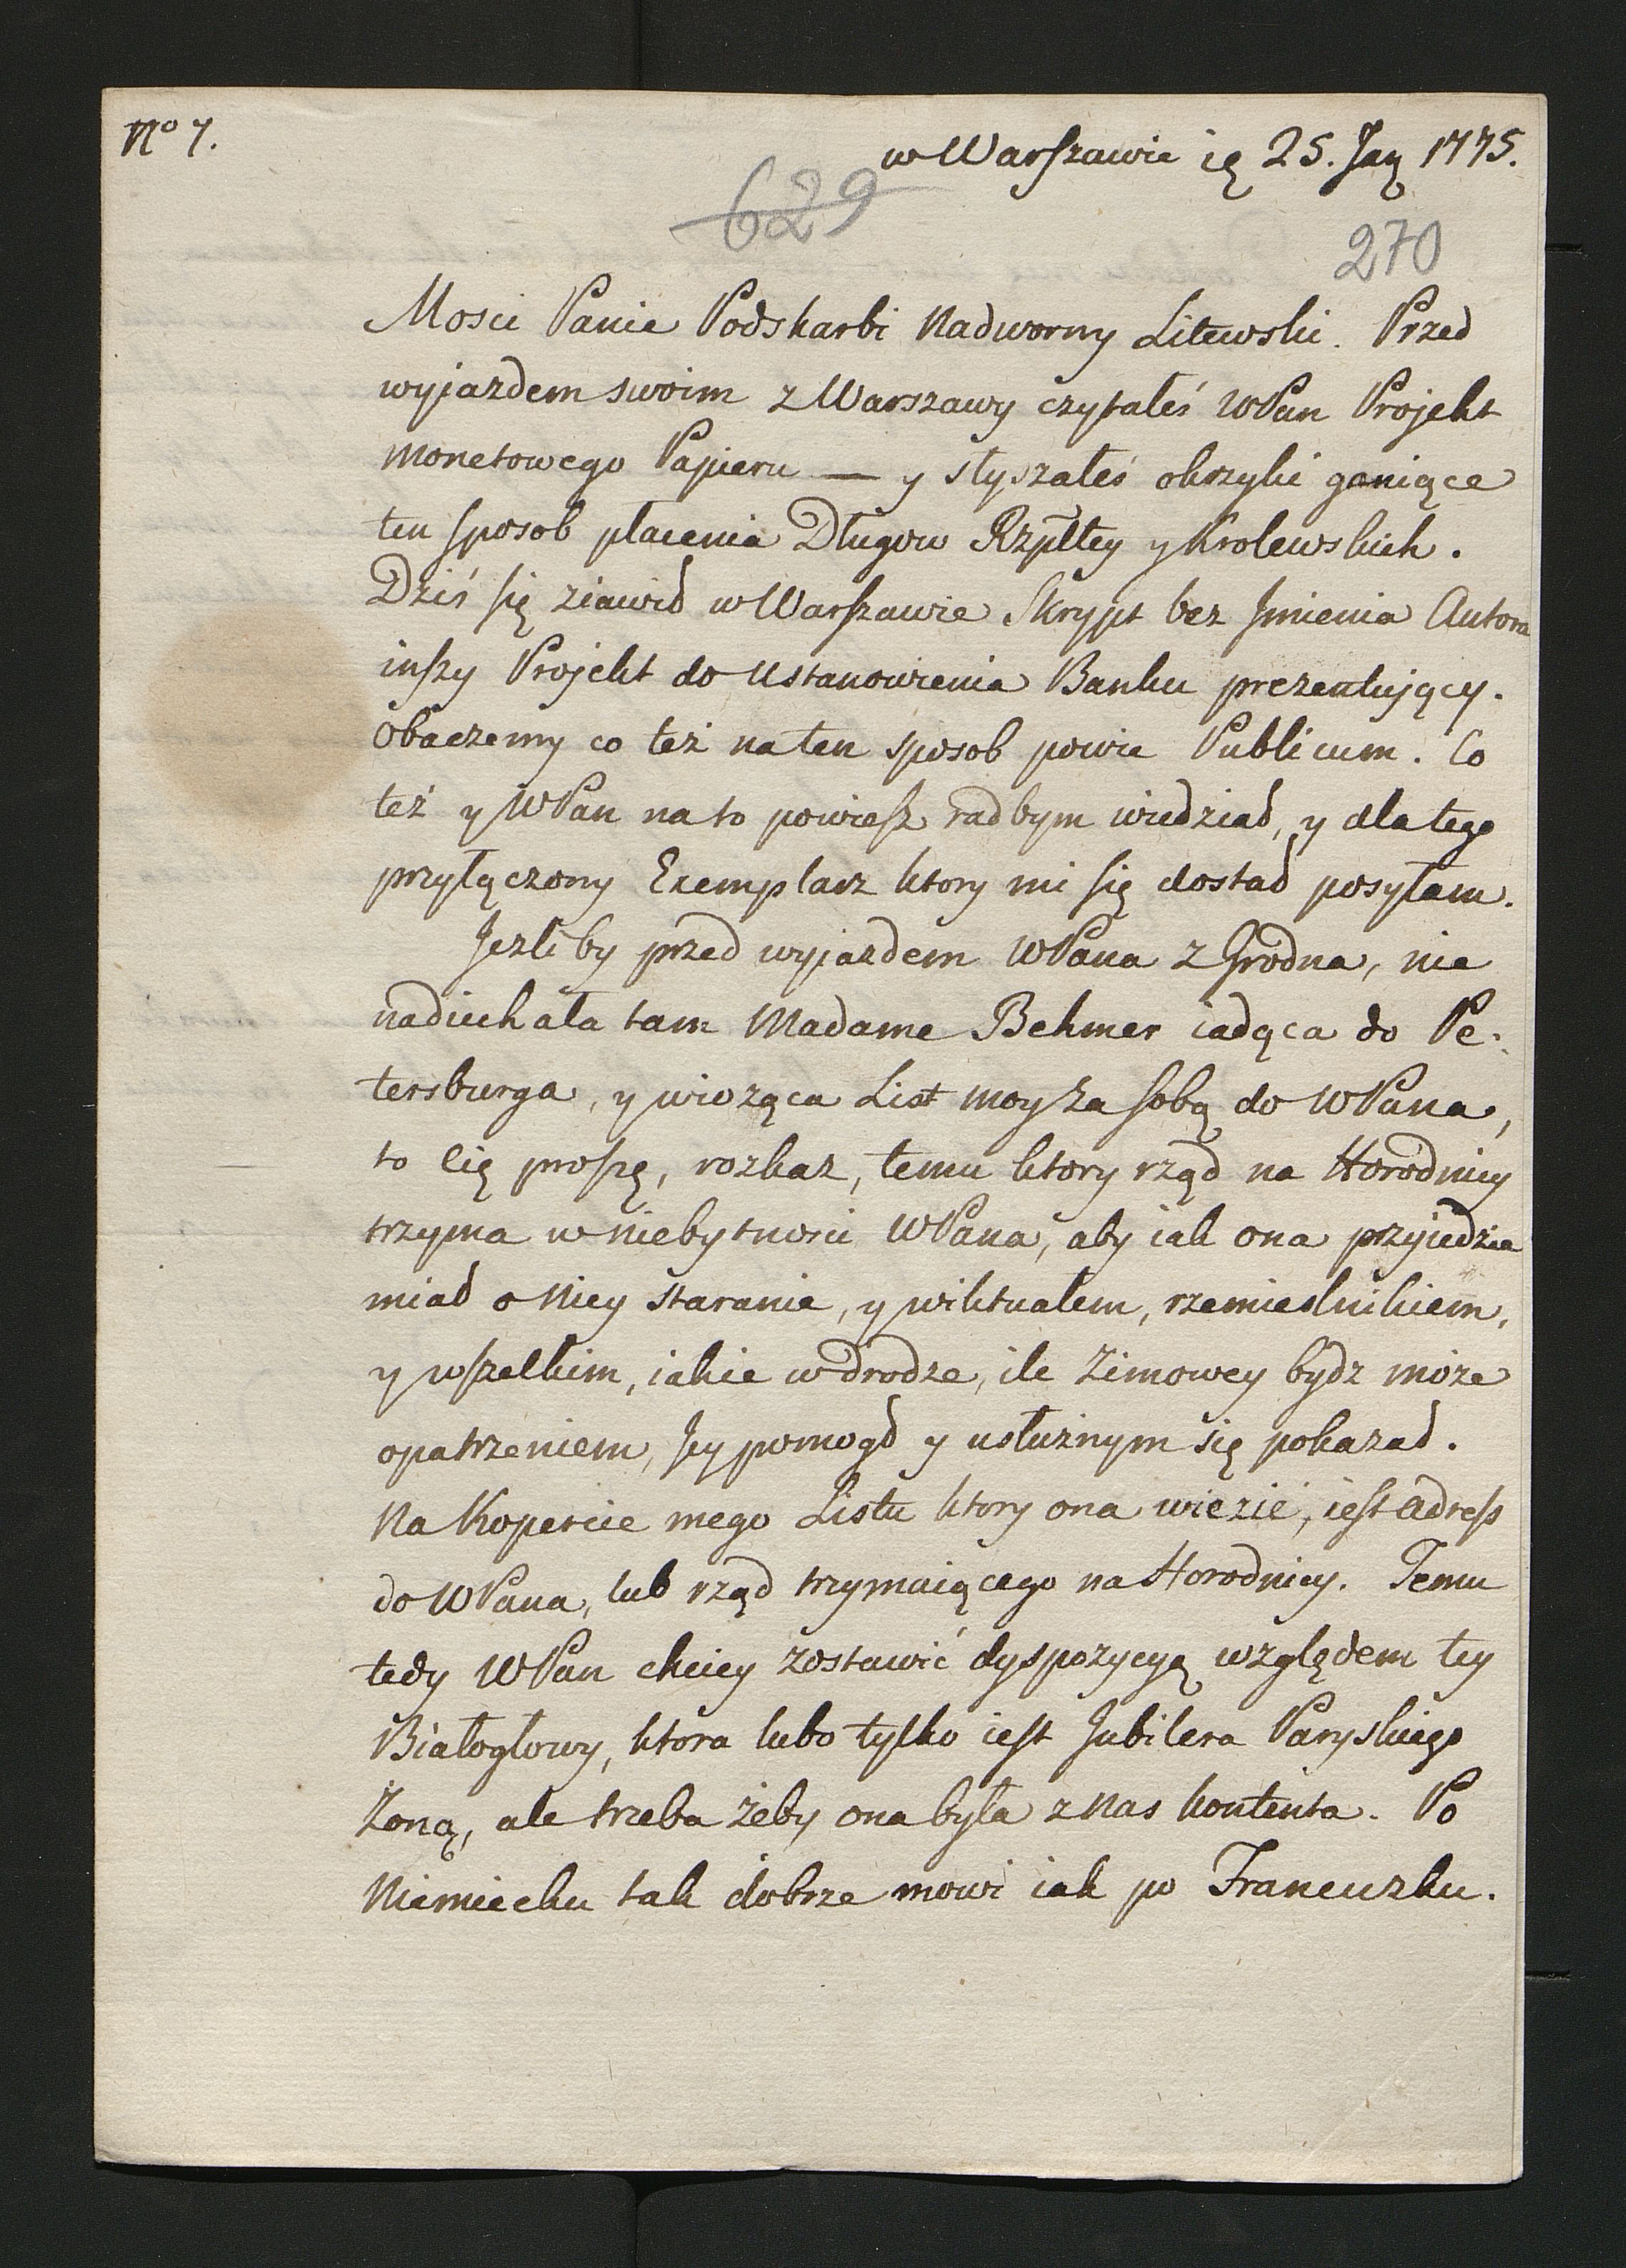 No 7.
w Warszawie ię 25. Jan 1775.
629
270
Mosci Panie Podskarbi Nadworny Litewski. Przed
wyjazdem swoim z Warszawy czytałeś WPan Projekt
monetowego Papieru — y słyszałeś okrzyki ganiące
ten sposob płacenia Długow Rzpltey y Krolewskich.
Dziś się ziawił w Warszawie Skrypt bez Jmienia Autora
inszy Projekt do Ustanowienia Banku prezentujący.
Obaczemy co też na ten sposob powie Publicum. Co
też y WPan na to powiesz rad bym wiedział, y dla tego
przyłączony Exemplarz ktory mi się dostał posyłam.
Jezli by przed wyjazdem WPana z Grodna, nie
nadiechała tam Madame Behmer iadąca do Pe-
tersburga, y wioząca List moy za sobą do WPana,
to Cię proszę, rozkaz, temu ktory rząd na Horodnicy
trzyma w niebytnosci WPana, aby iak ona przyiedzie
miał o Niey staranie, y wiktuałem, rzemieslnikiem,
y wszelkim, iakie w drodze, ile Zimowey bydz może
opatrzeniem, Jey pomogł y usłużnym się pokazał.
Na Kopercie mego Listu ktory ona wiezie, iest Adress
do WPana, lub rząd trzymaiącego na Horodnicy. Temu
tedy WPan chciey zostawić dyspozycyą względem tey
Białogłowy, ktora lubo tylko iest Jubilera Paryskiego
Żoną, ale trzeba żeby ona była z Nas kontenta. Po
Niemiecku tak dobrze mowi iak po Francuzku.